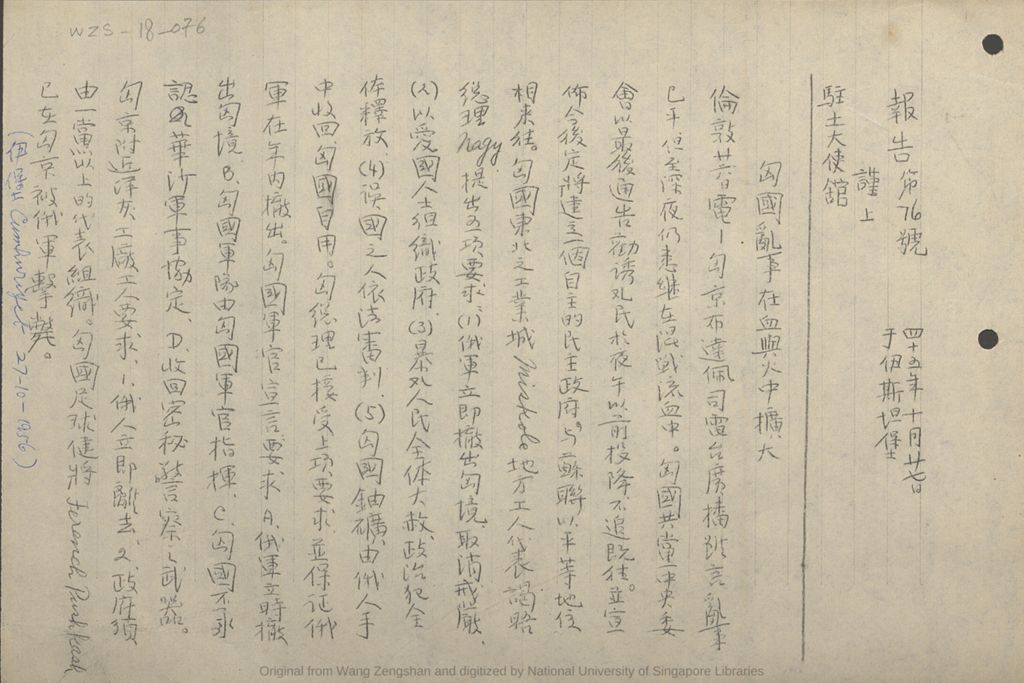 WZS-18-076
報告第76號
四十五年十月廿七日
于伊斯坦堡
謹上
駐土大使舘
匈國亂事在血與火中擴大
倫敦廿六日電—匈京布達佩司電台廣播雖言亂事
已平但至深夜仍悉繼在混戰流血中。匈國共黨中央委
會以最後通告勸誘乱民於夜午以前投降不追既往並宣
佈今後定將建立一個自主的民主政府。与蘇聯以平等地位
相来往。匈國東北之工業城 Miskole 地方工人代表謁晤
總理 Nagy 提出五項要求:(1)俄軍立即撤出匈境,取消戒嚴.
(2)以愛國人士組織政府.(3)暴乱人民全体大赦,政治犯全
体釋放.(4)误國之人依法審判.(5)匈國鈾礦由俄人手
中收回匈國自用。匈總理已接受上項要求並保証俄
軍在年內撤出。匈國軍官宣言要求 A.俄軍立時撤
出匈境.B.匈國軍隊由匈國軍官指揮.C.匈國不承
認華沙軍事協定.D.收回密秘警察之武器。
匈京附近洋灰工廠工人要求.1.俄人立即離去.2.政府須
由一黨以上的代表組織。匈國足球健將 Ferench Pushkash
已在匈京被俄軍擊斃。
(Cumhuriyet 27-10-1956)
Original from Wang Zengshan and digitized by National University of Singapore Libraries